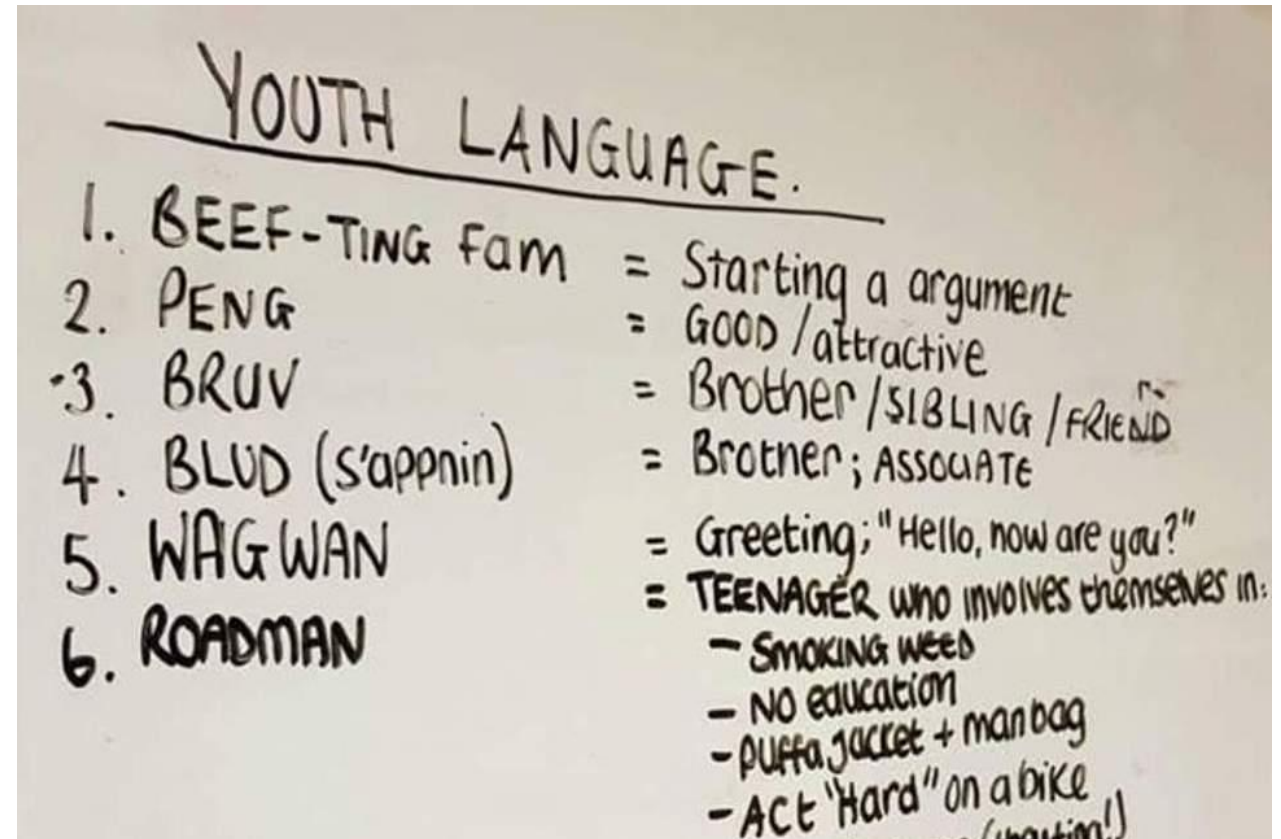 YOUTH LANGUAGE.
1. BEEF-TING Fam = Starting a argument
2. PENG = GOOD / attractive
3. BRUV = Brother / SIBLING / FRIEND
4. BLUD (s'appnin) = Brother; ASSOCIATE
5. WAGWAN = Greeting; "Hello, how are you?"
6. ROADMAN = TEENAGER who involves themselves in:
- SMOKING WEED
- NO education
- puffa jacket + man bag
- ACt "Hard" on a bike
(shouting!)